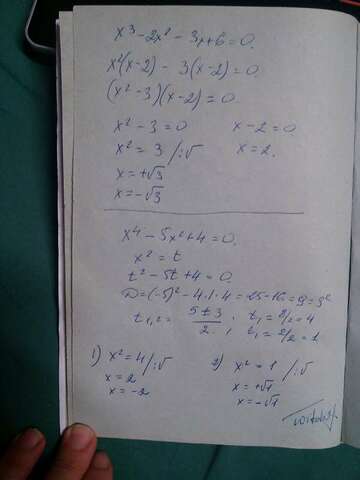 x³-2x²-3x+6=0.
x²(x-2)-3(x-2)=0.
(x²-3)(x-2)=0.
x²-3=0 x-2=0
x²=3 /:√ x=2.
x=+√3
x=-√3
x⁴-5x²+4=0.
x²=t
t²-5t+4=0.
D=(-5)²-4·1·4=25-16=9=3²
t₁,₂=(5±3)/2; t₁=8/2=4
t₁=2/2=1
1) x²=4/:√ 2) x²=1 /:√
x=2 x=+√1
x=-2 x=-√1